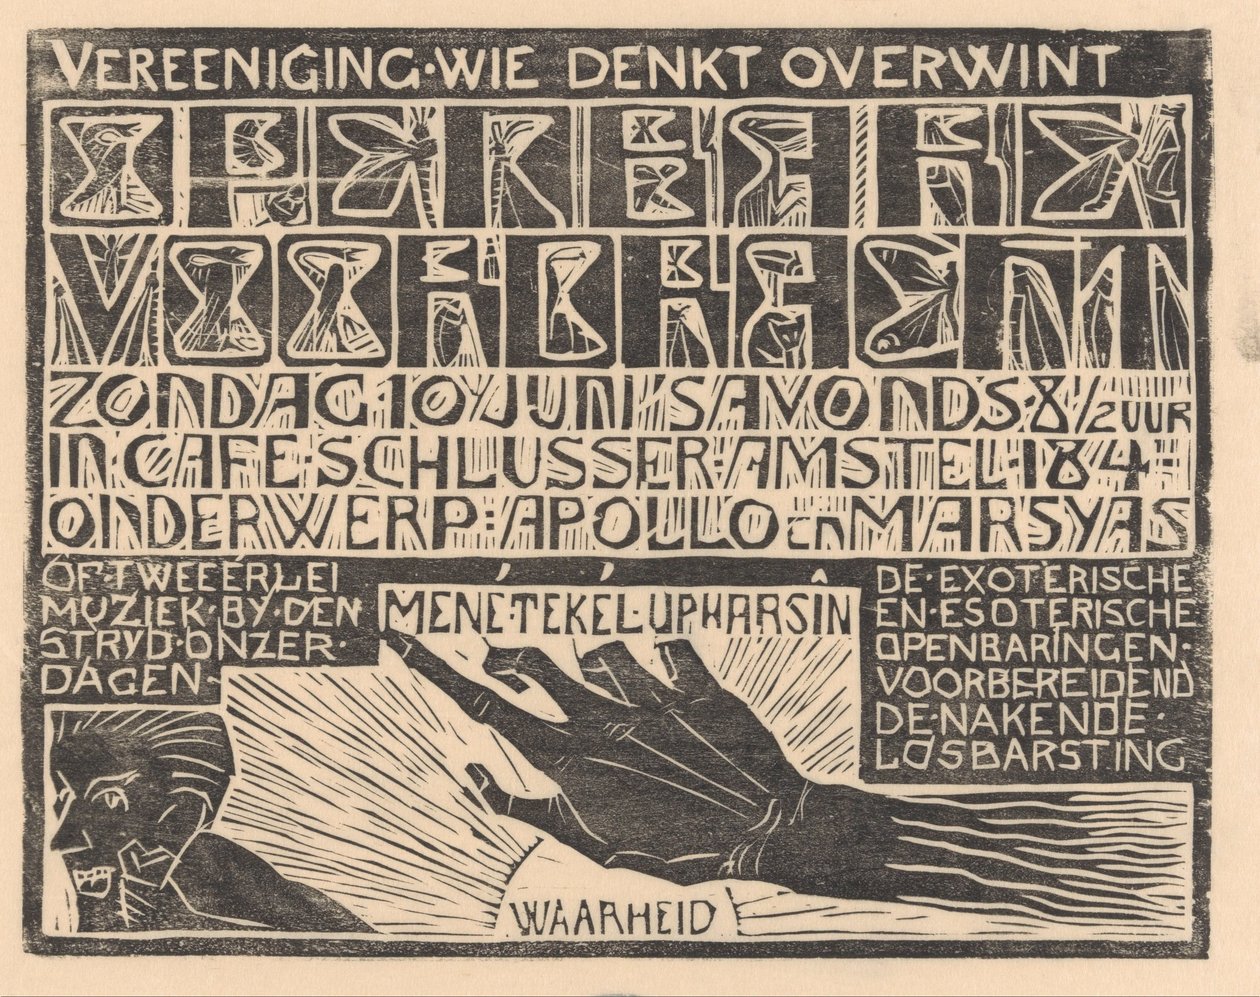 VEREENIGING·WIE DENKT OVERWINT
OPENBARE
VOORDRACHT
ZONDAG 10 JUNI 'S AVONDS·8 1/2 UUR
IN CAFE SCHLUSSER·AMSTEL·184
ONDERWERP: APOLLO en MARSYAS
OF·TWEEËRLEI
MUZIEK·BY·DEN
STRYD·ONZER·
DAGEN·
MENÉ·TEKÉL·UPHARSÎN
DE·EXOTERISCHE
EN·ESOTERISCHE
OPENBARINGEN·
VOORBEREIDEND
DE·NAKENDE·
LOSBARSTING
WAARHEID